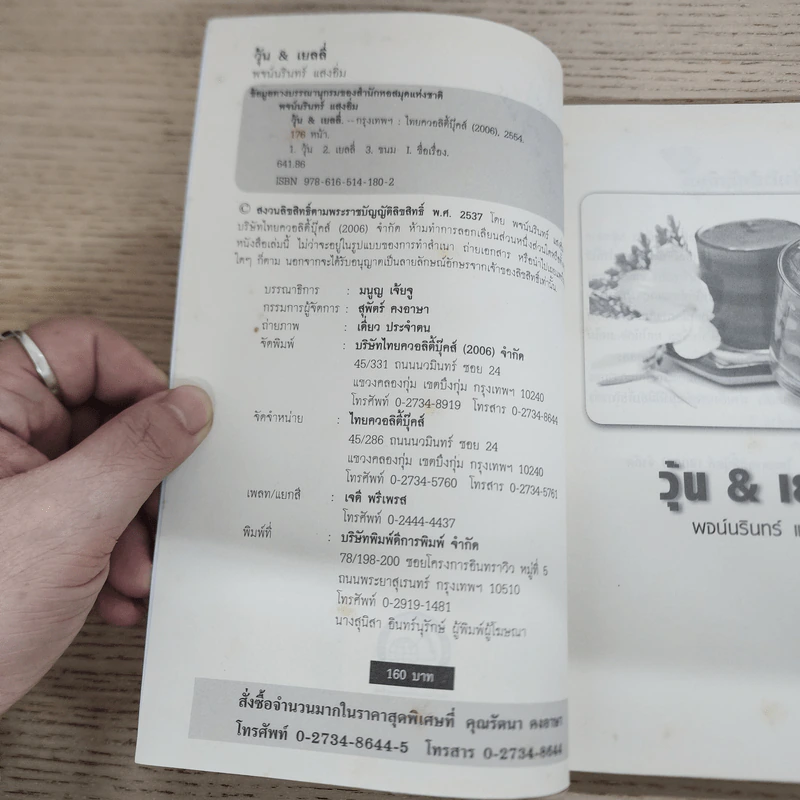 วุ้น & เยลลี่
พจน์นรินทร์ แสงยิ้ม
ข้อมูลทางบรรณานุกรมของสำนักหอสมุดแห่งชาติ
พจน์นรินทร์ แสงยิ้ม
วุ้น & เยลลี่. -- กรุงเทพฯ : ไทยควอลิตี้บุ๊คส์ (2006), 2554.
176 หน้า.
1. วุ้น 2. เยลลี่ 3. ขนม I. ชื่อเรื่อง.
641.86
ISBN 978-616-514-180-2
© สงวนลิขสิทธิ์ตามพระราชบัญญัติลิขสิทธิ์ พ.ศ. 2537 โดย พจน์นรินทร์
บริษัทไทยควอลิตี้บุ๊คส์ (2006) จำกัด ห้ามทำการลอกเลียนส่วนหนึ่งส่วนใด
หนังสือเล่มนี้ ไม่ว่าจะอยู่ในรูปแบบของการทำสำเนา ถ่ายเอกสาร หรือนำไป
ใดๆ ก็ตาม นอกจากจะได้รับอนุญาตเป็นลายลักษณ์อักษรจากเจ้าของลิขสิทธิ์เท่านั้น
บรรณาธิการ : มนูญ เจ้ยจู
กรรมการผู้จัดการ : สุพัตร์ คงอาษา
ถ่ายภาพ : เดี่ยว ประจำตน
จัดพิมพ์ : บริษัทไทยควอลิตี้บุ๊คส์ (2006) จำกัด
45/331 ถนนนวมินทร์ ซอย 24
แขวงคลองกุ่ม เขตบึงกุ่ม กรุงเทพฯ 10240
โทรศัพท์ 0-2734-8919 โทรสาร 0-2734-8644
จัดจำหน่าย : ไทยควอลิตี้บุ๊คส์
45/286 ถนนนวมินทร์ ซอย 24
แขวงคลองกุ่ม เขตบึงกุ่ม กรุงเทพฯ 10240
โทรศัพท์ 0-2734-5760 โทรสาร 0-2734-5761
เพลท/แยกสี : เจดี พรีเพรส
โทรศัพท์ 0-2444-4437
พิมพ์ที่ : บริษัทพิมพ์ดีการพิมพ์ จำกัด
78/198-200 ซอยโครงการอินทราวิว หมู่ที่ 5
ถนนพระยาสุเรนทร์ กรุงเทพฯ 10510
โทรศัพท์ 0-2919-1481
นางสุนิสา อินทร์นุรักษ์ ผู้พิมพ์ผู้โฆษณา
160 บาท
สั่งซื้อจำนวนมากในราคาสุดพิเศษที่ คุณรัตนา คงอาษา
โทรศัพท์ 0-2734-8644-5 โทรสาร 0-2734-8644
วุ้น &
พจน์นรินทร์